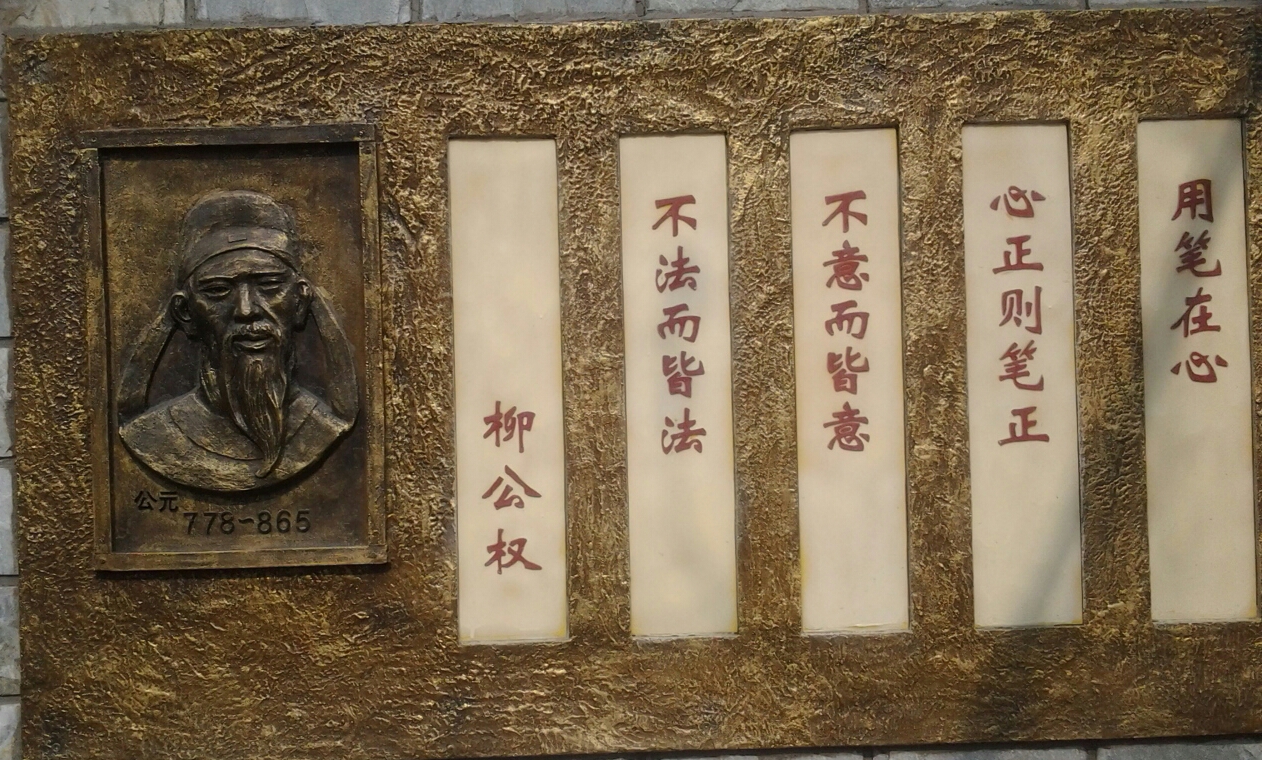 用笔在心
心正则笔正
不意而皆意
不法而皆法
柳公权
公元
778-865